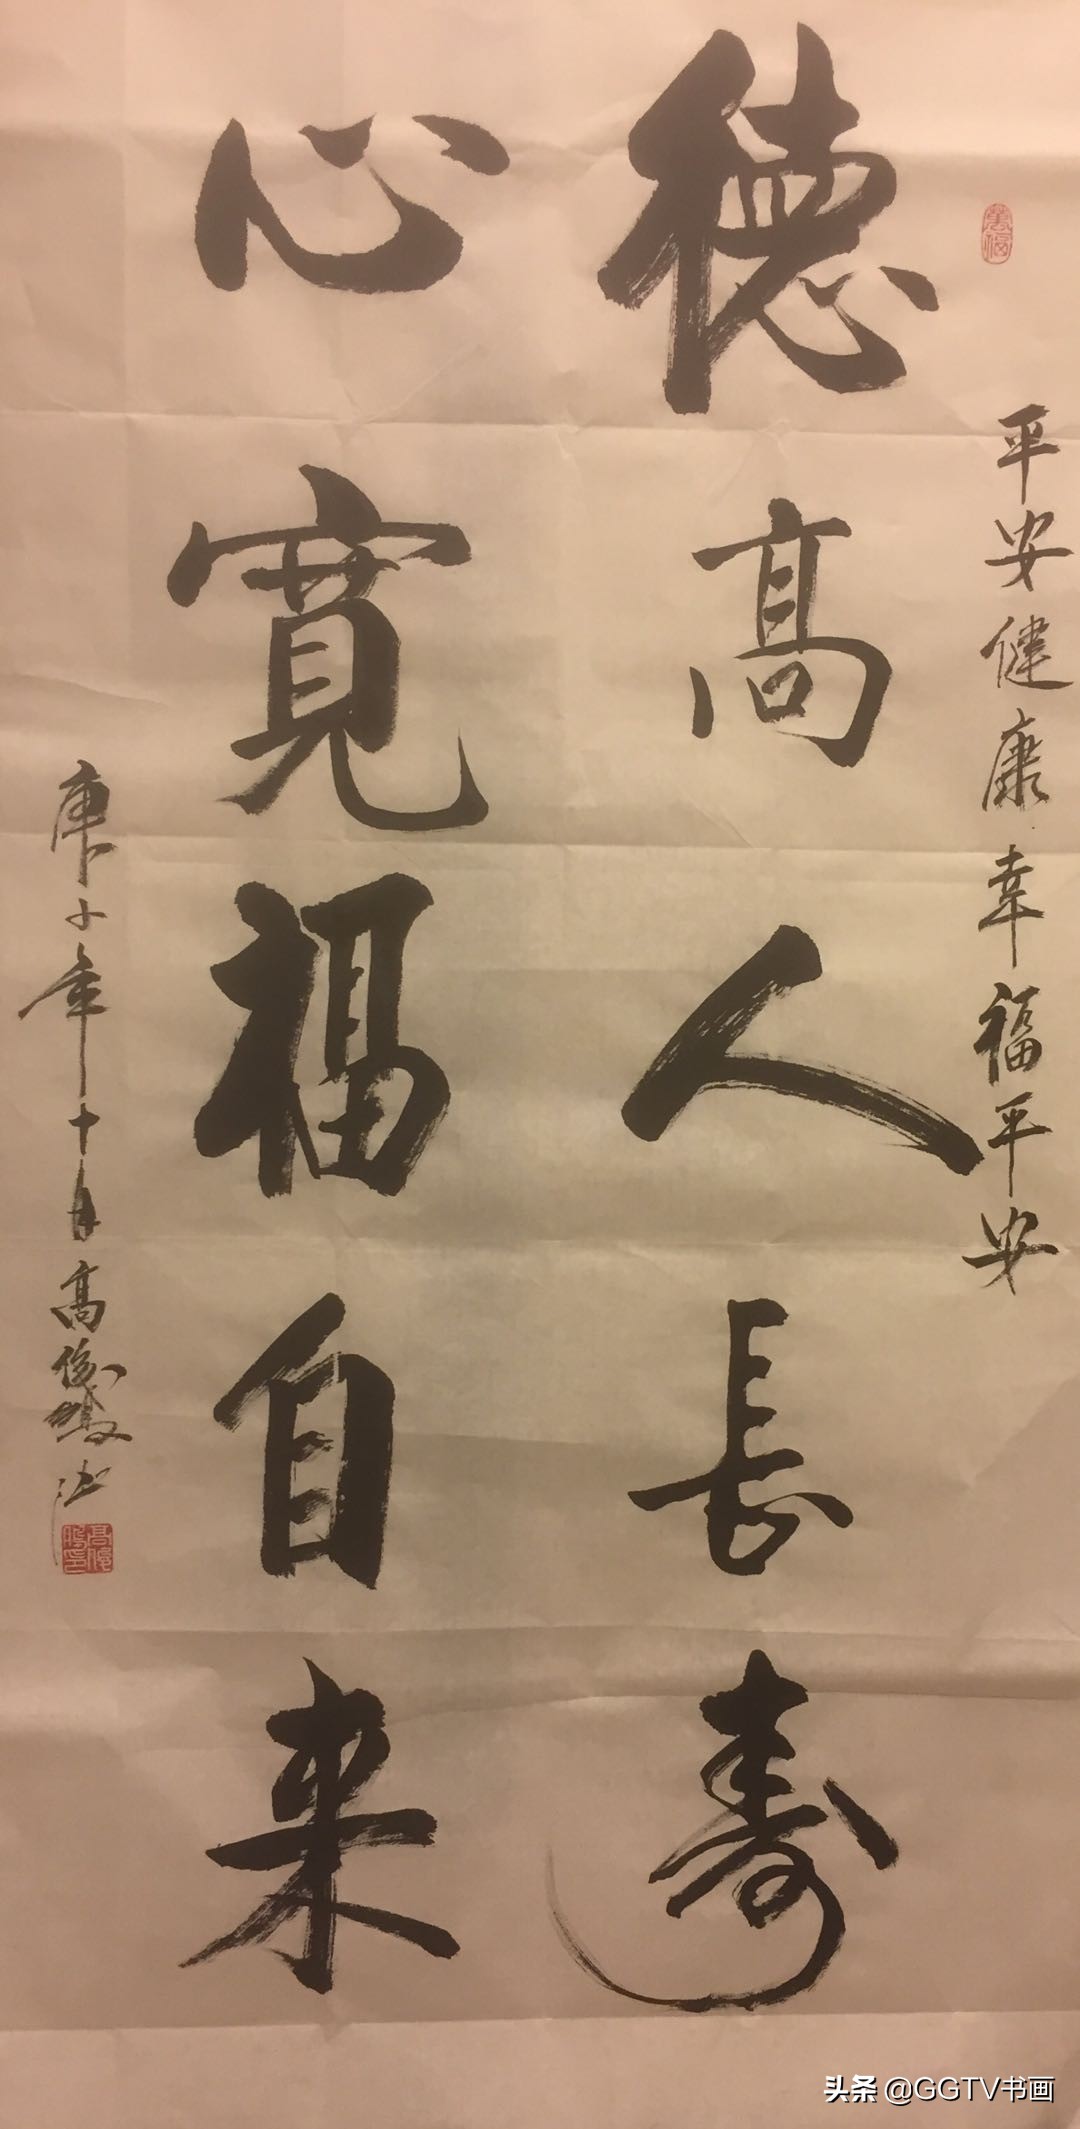 平安健康幸福平安
德高人長寿
心寬福自来
庚子年十月高俊
头条 @GGTV书画